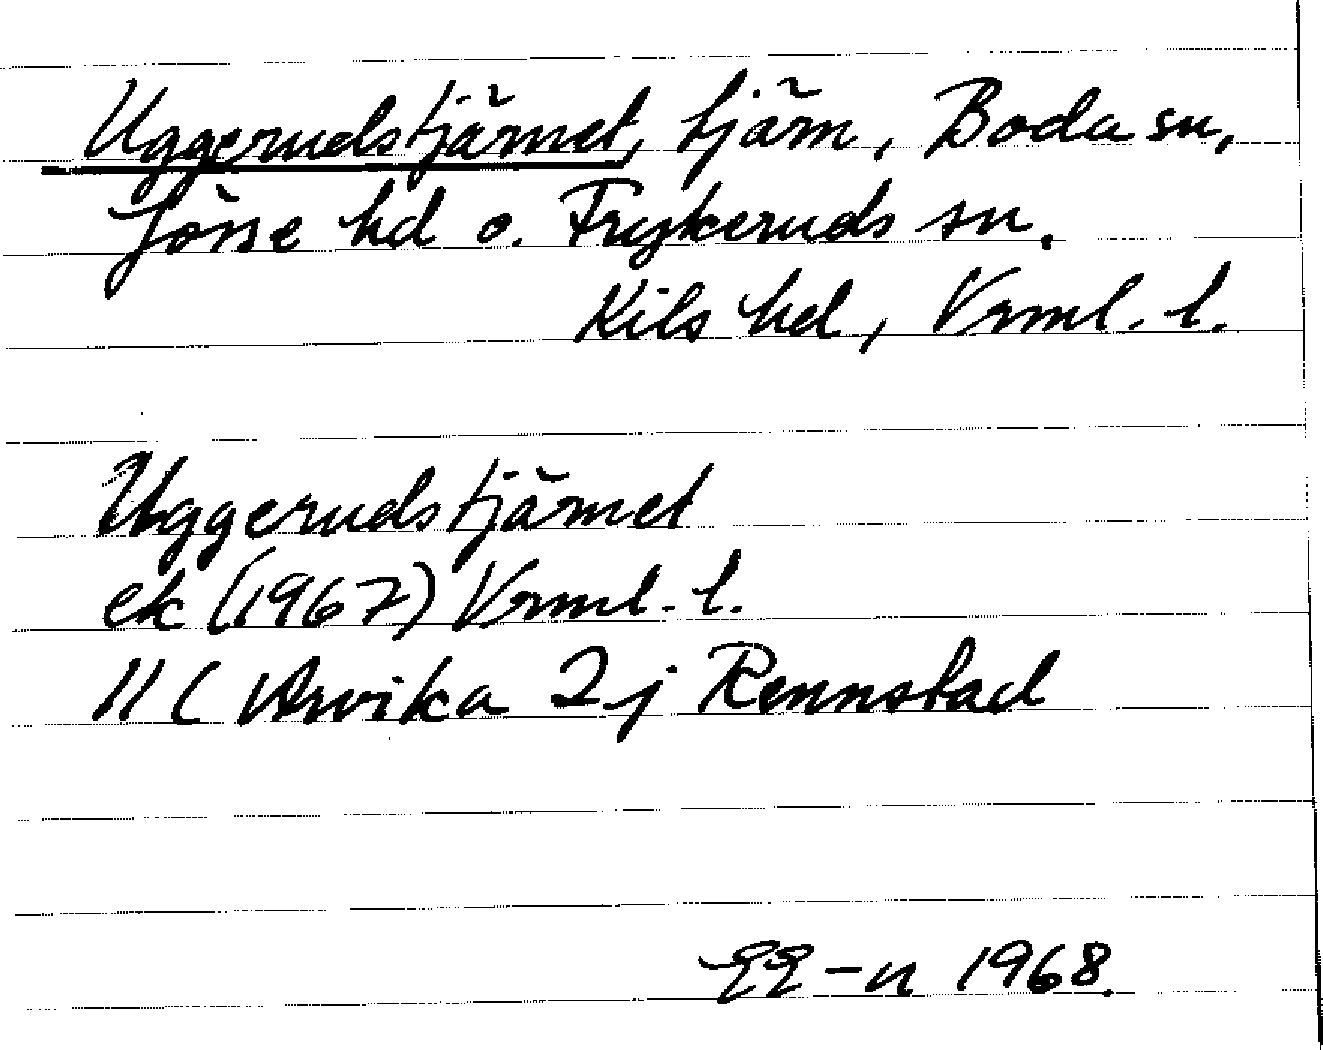 Uggerudstjärnet, tjärn, Boda sn,
Jösse hd o. Frykeruds sn.
Kils hd, Vrml. l.
Uggerudstjärnet
ek (1967) Vrml. l.
11 C Arvika 2j Rennstad
EE-n 1968.